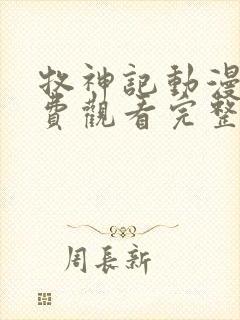 牧神記動漫
費觀看完整
周長新